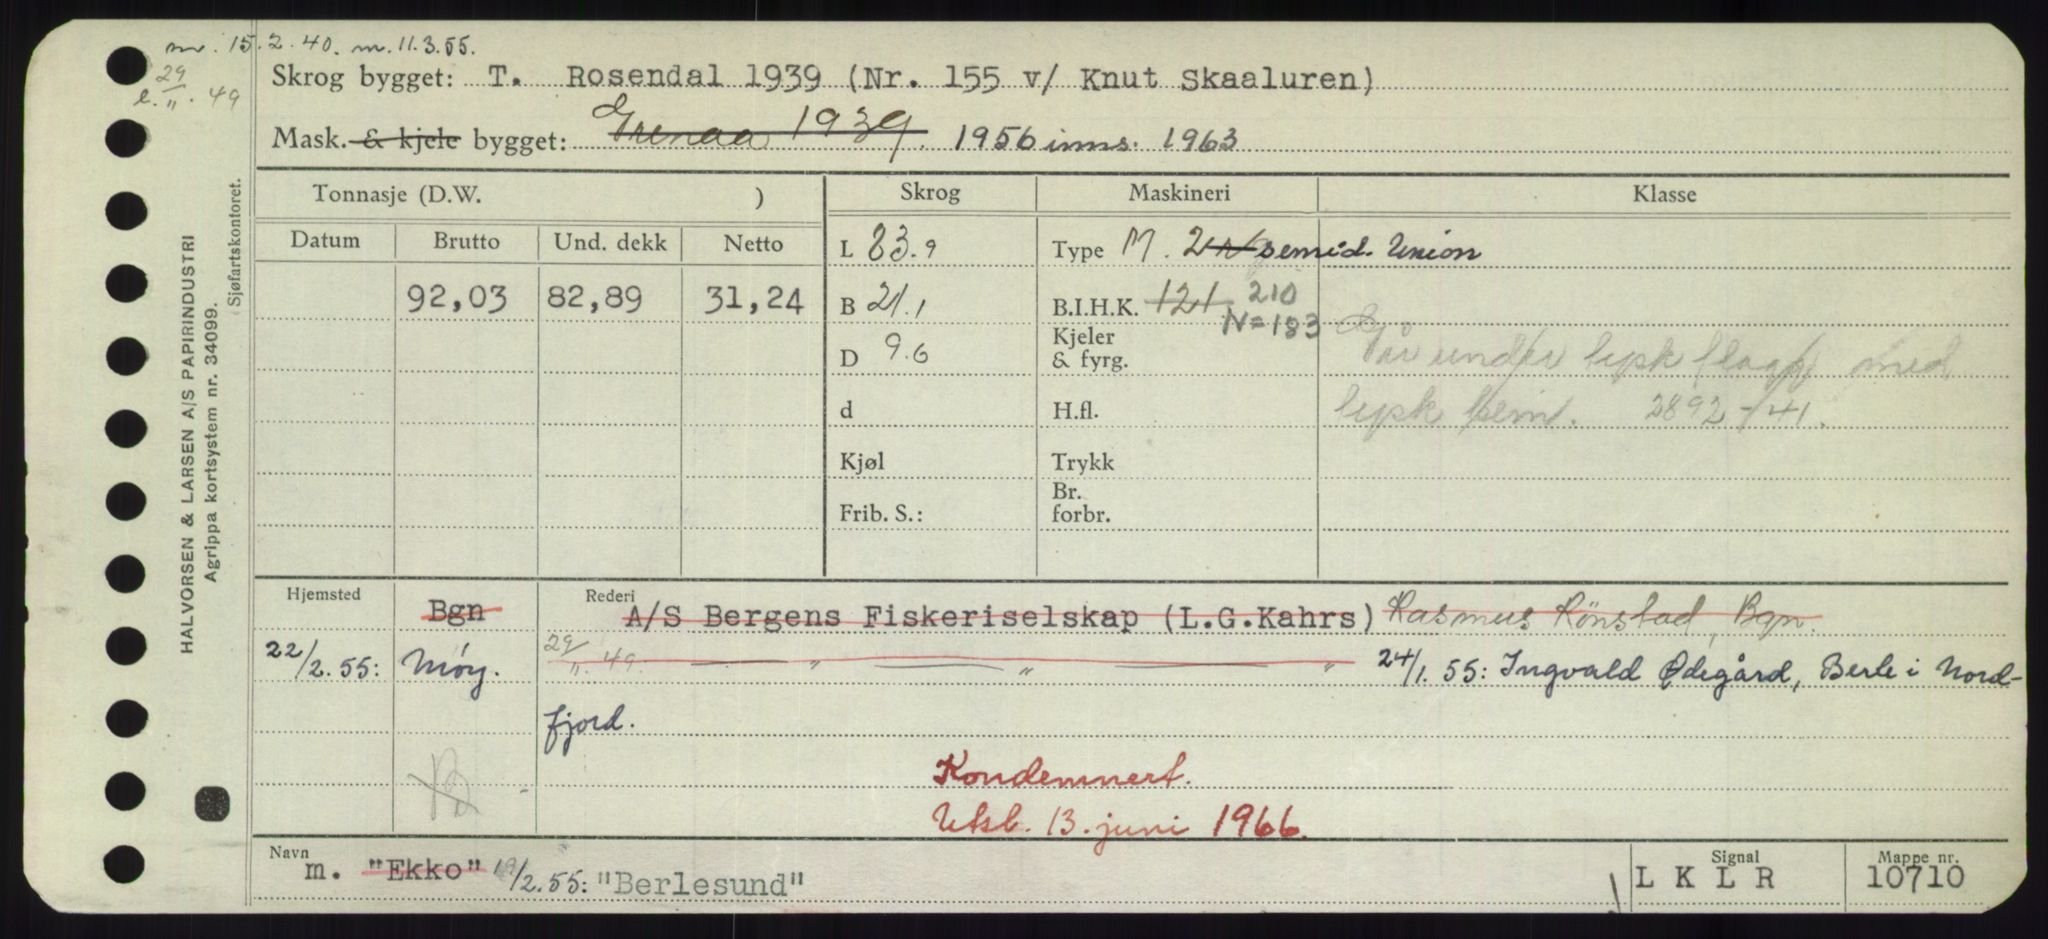 m. 15.2.40. m. 11.3.55.
29/11. 49
Skrog bygget: T. Rosendal 1939 (Nr. 155 v/ Knut Skaaluren)
Mask. & kjele bygget: Grenaa 1939. 1956 inns. 1963
HALVORSEN & LARSEN A/S PAPIRINDUSTRI
Agrippa kortsystem nr. 34099.
Sjøfartskontoret.
Tonnasje (D.W. ) Skrog Maskineri Klasse
Datum Brutto Und. dekk Netto L 83.9 Type M. 2 semid. Union
92,03 82,89 31,24 B 21.1 B.I.H.K. 121 210
N=183
D 9.6 Kjeler & fyrg. Går under tysk flagg med
d H.fl. tysk bem. 2892-41.
Kjøl Trykk
Frib. S.: Br. forbr.
Hjemsted Bgn Rederi A/S Bergens Fiskeriselskap (L.G.Kahrs) Rasmus Rönstad, Bgn.
22/2.55: Møy. 29/11. 49. — " — " — " 24/1. 55: Ingvald Ødegård, Berle i Nord-
fjord.
Kondemnert.
Utsb. 13. juni 1966.
Navn m. "Ekko" 19/2.55: "Berlesund" Signal LKLR Mappe nr. 10710